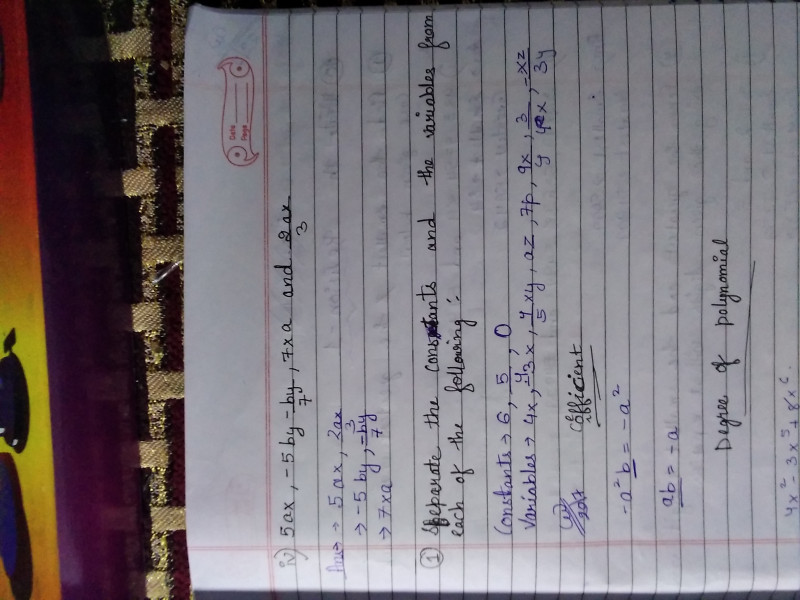 Date
Page
iv) 5ax, -5by -by/7, 7xa and 2ax/3
Ans→ → 5ax, 2ax/3
→ -5by, -by/7
→ 7xa
① Seperate the constants and the variables from
each of the following :
Constants → 6, 5, 0
Variables → 4x, 3x, 4/5 xy, az, 7p, 9x, 3/y, x, -xz/3y
Cofficient
-a²b = -a²
ab = -a
Degree of polynomial
4x² - 3x⁵ + 8x⁶.